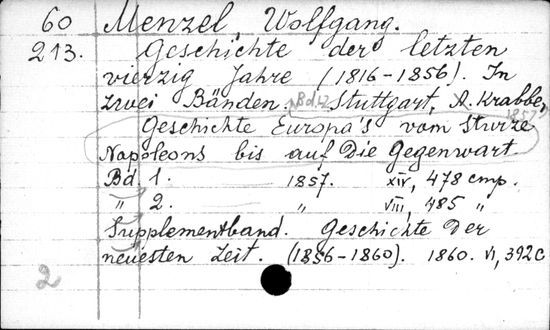 60 Menzel, Wolfgang.
213. Geschichte der letzten
vierzig Jahre (1816-1856). In
zwei Bänden. Stuttgart, A. Krabbe,
1857.
Geschichte Europa's vom Sturze
Napoleons bis auf Die Gegenwart
Bd 1. 1857. XIV, 478 cmp.
" 2. " VIII, 485 "
Supplementband. Geschichte Der
neuesten Zeit. (1856-1860). 1860. VI, 392 c
2